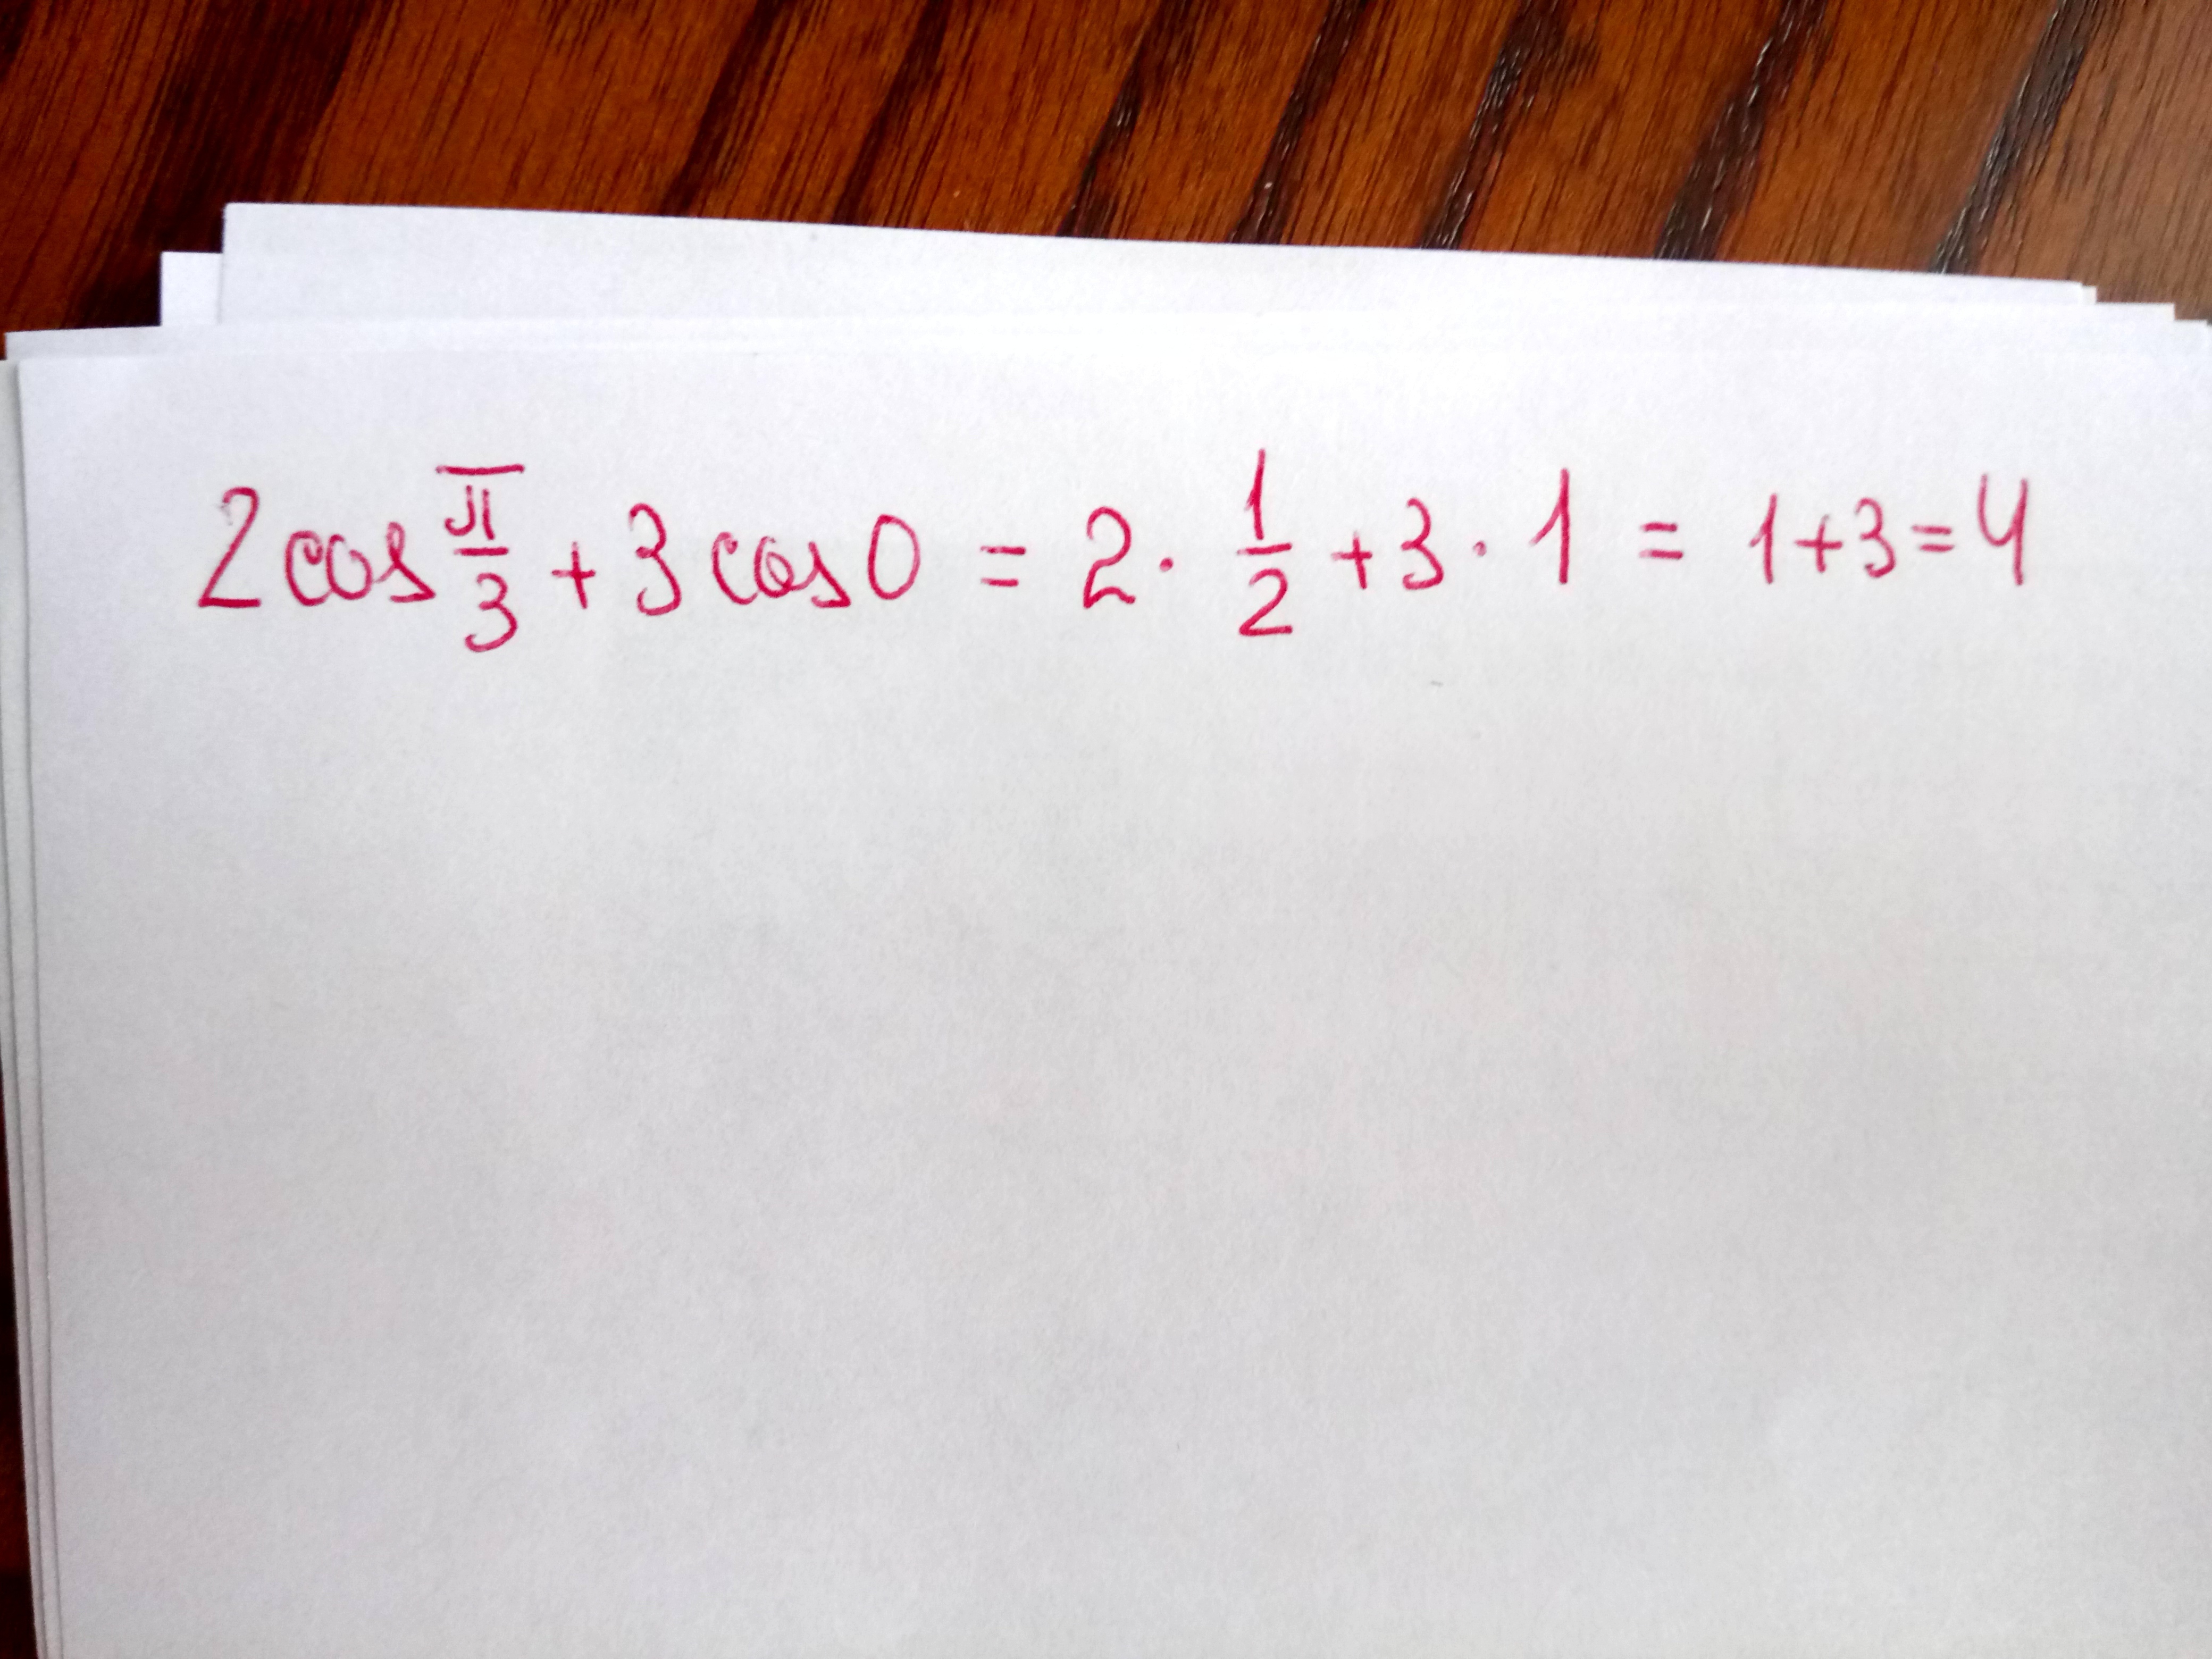 2cos π/3 + 3cos0 = 2 · 1/2 + 3 · 1 = 1+3=4